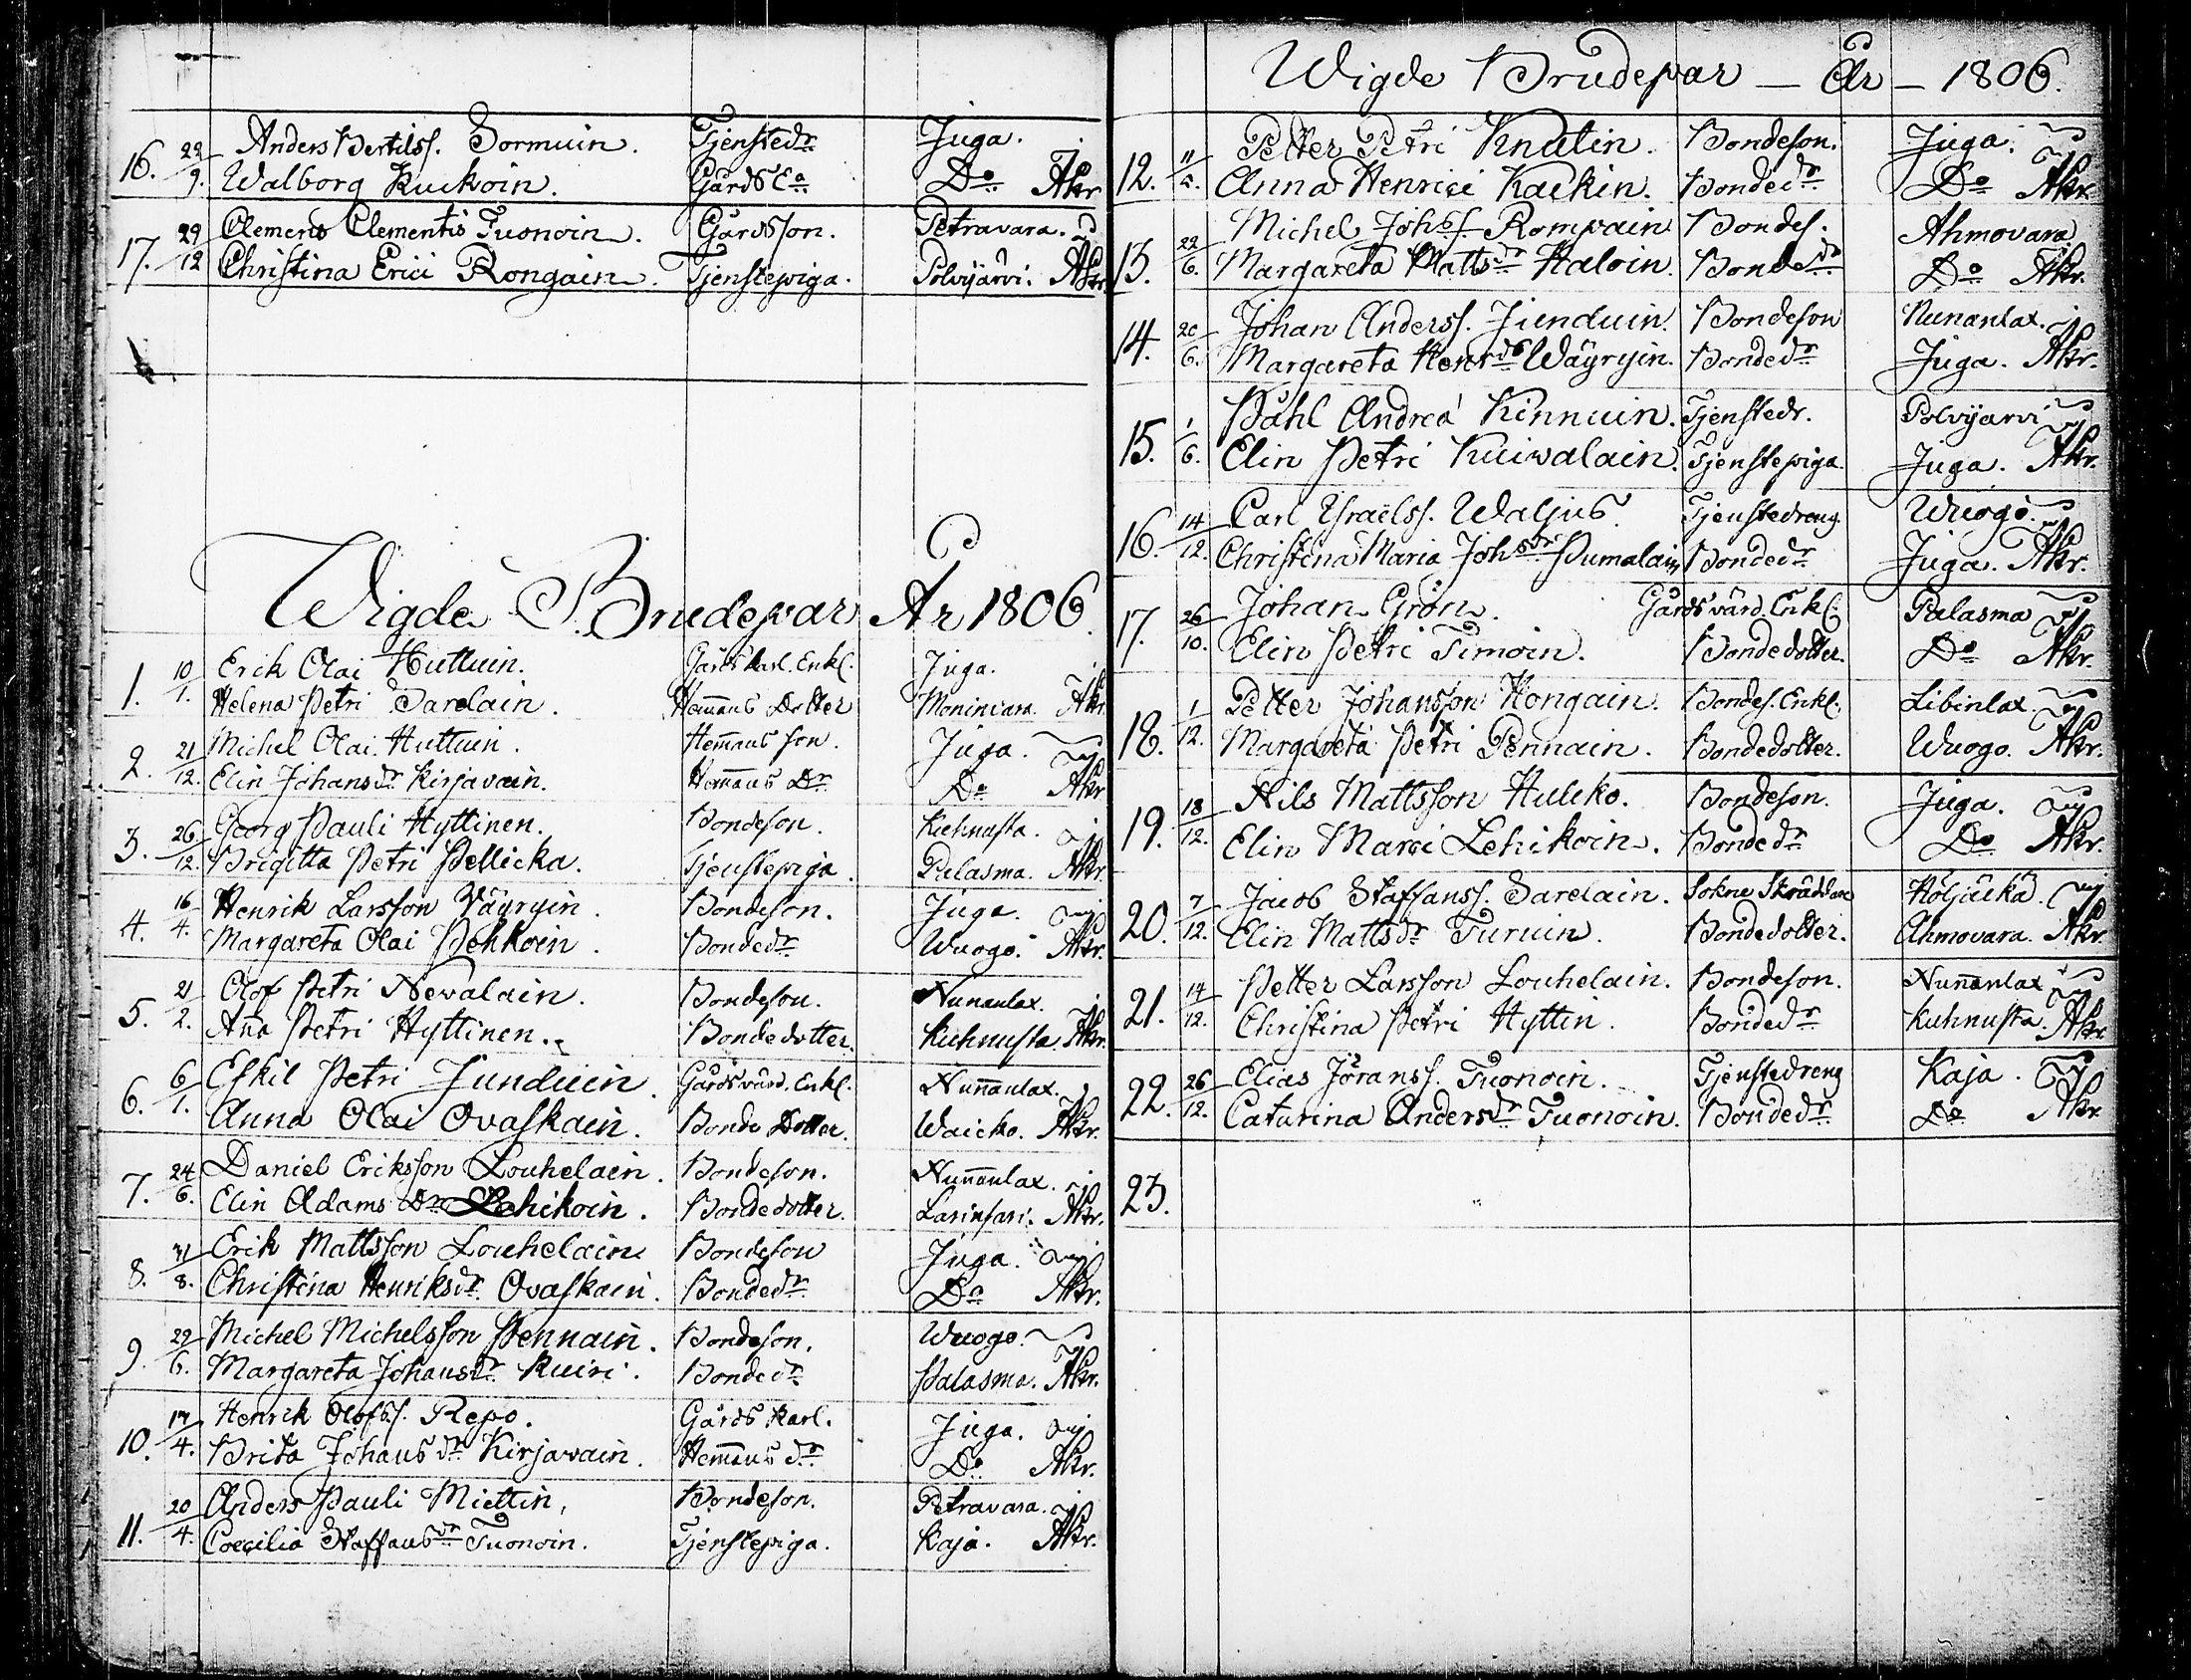 16. 22/9. Anders Bertilss. Sormuin. Tjenstedr Juga.
Walborg Kuckoin. Gårds Ea Do Akr
17. 29/12 Clemens Clementis Tuonoin. Gårdsson. Petravara.
Christina Erici Rongain. Tjenstepiga. Polvijärvi. Akr.
Wigde Brudepar År 1806.
1. 10/1. Erik Olai Huttuin. Gårdskarl. Enkl. Juga.
Helena Petri Sarelain. Hemans Dotter Moninvara. Akr.
2. 21/12. Michel Olai Huttuin. Hemans son. Juga.
Elin Johansdr Kirjavain. Hemans Dr Do Akr
3. 26/12. Georg Pauli Hyttinen. Bondeson. Kuhnusta.
Brigitta Petri Pellicka. Tjenstepiga. Palasma. Akr.
4. 16/4. Henrik Larsson Väyryin. Bondeson. Juga.
Margareta Olai Pehkoin. Bondedr Wuogo. Akr.
5. 21/2. Olof Petri Nevalain. Bondeson. Nunanlax.
Ana Petri Hyttinen. Bondedotter. Kuhnusta. Akr.
6. 6/1. Eskil Petri Junduin. Gårdsvärd. Enkl. Nunanlax.
Anna Olai Ovaskain. Bonde Dotter. Waicko. Akr.
7. 24/6. Daniel Eriksson Louhelain. Bondeson. Nunanlax.
Elin Adams Dr Lehikoin. Bondedotter. Larinsari. Akr.
8. 31/8. Erik Mattsson Louhelain Bondeson Juga.
Christina Henriksdr Ovaskain. Bondedr Do Akr.
9. 29/6. Michel Michelsson Pennain. Bondeson. Wuogo.
Margareta Johansdr Kuiri. Bondedr Palasma. Akr.
10. 17/4. Henrik Olofss. Repo. Gårds karl. Juga.
Brita Johansdr Kirjavain. Hemans dr Do Akr.
11. 20/4. Anders Pauli Miettin, Bondeson. Petravara.
Coecilia Staffansdr Tuonoin. Tjenstepiga. Kaja. Akr.
Wigde Brudepar — År — 1806.
12. 11/5. Petter Petri Knutin. Bondeson. Juga.
Anna Henrici Kackin. Bondedr Do Akr.
13. 22/6. Michel Johss. Rompain Bondes. Ahmovara
Margareta Mattsdr Haloin. Bondedr Do Akr.
14. 20/6. Johan Anderss. Jienduin. Bondeson Nunanlax.
Margareta Henrds Wäyryin. Bondedr Juga. Akr.
15. 1/6. Påhl Andreä Kinnuin. Tjenstedr. Polvijarvi
Elin Petri Kuivalain. Tjenstepiga. Juga. Akr.
16. 14/12. Carl Israelss. Waljus. Tjenstedreng Wuogo.
Christina Maria Johsdr Pumalain Bondedr Juga. Akr.
17. 26/10. Johan Grön. Gårdsvärd. Enkl. Palasma
Elin Petri Timoin. Bondedotter. Do Akr.
18. 1/12. Petter Johansson Hongain. Bondes. Enkl. Libinlax.
Margareta Petri Pennain. Bondedotter. Wuogo. Akr.
19. 18/12. Nils Mattsson Hulcko. Bondeson. Juga.
Elin Marci Lehikoin. Bondedr Do Akr.
20. 7/12. Jacob Staffanss. Sarelain. Sokne Skräddare Höljäckä.
Elin Mattsdr Turuin. Bondedotter. Ahmovara. Akr.
21. 14/12. Petter Larsson Louhelain. Bondeson. Nunanlax
Christina Petri Hyttin. Bondedr Kuhnusta. Akr
22. 26/12. Elias Jöranss. Tuonoin. Tjenstedreng Kaja.
Catarina Andersdr Tuonoin. Bondedr Do Akr
23.